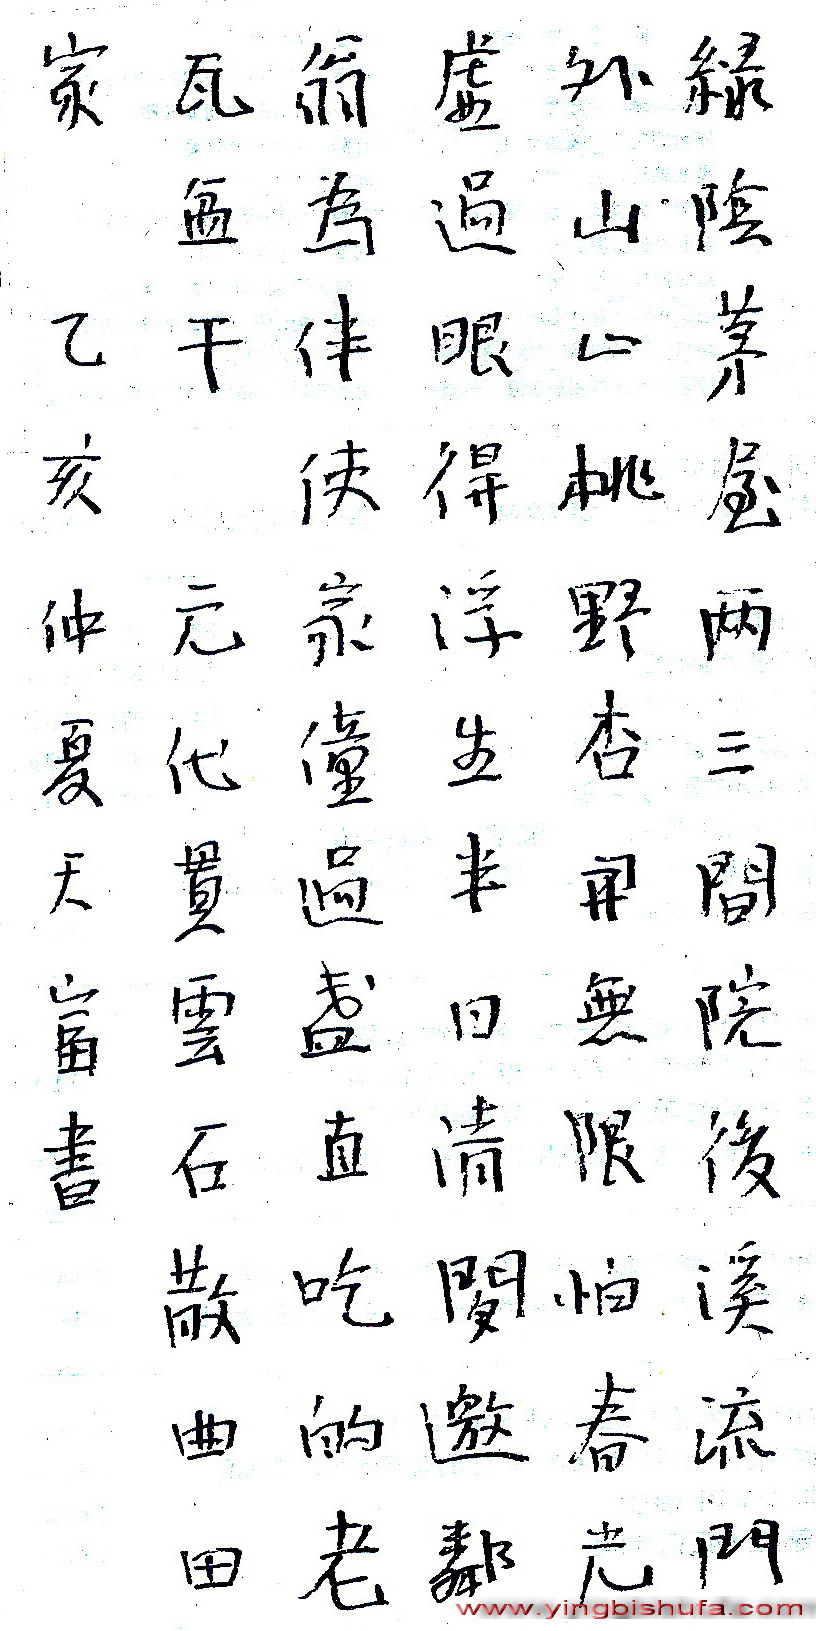 緑陰茅屋两三間院後溪流門
外山山桃野杏開無限怕春光
虛過眼得浮生半日清閒邀鄰
翁為伴使家僮過盞直吃的老
瓦盆干 元代貫雲石散曲田
家 乙亥仲夏天富書
www.yingbishufa.com